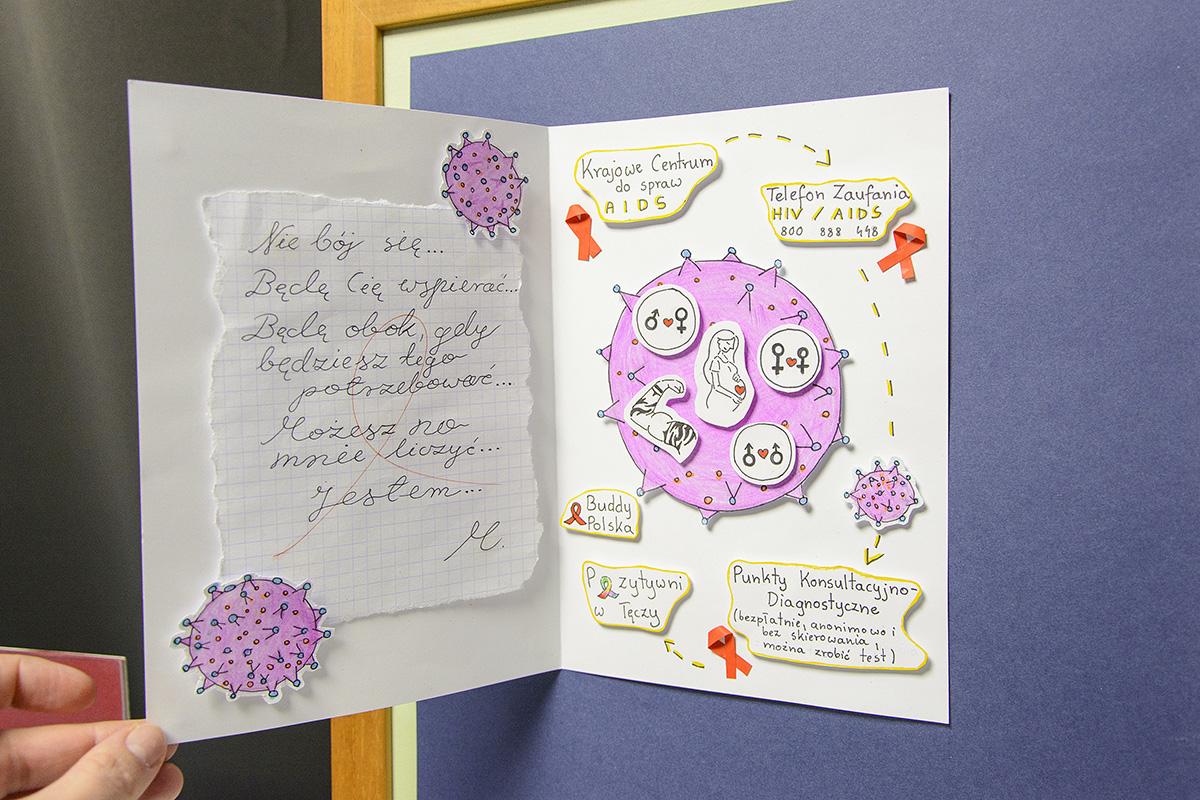 Nie bój się...
Będę Cię wspierać...
Będę obok, gdy
będziesz tego
potrzebować...
Możesz na
mnie liczyć...
Jestem...
M.
Krajowe Centrum
do spraw
AIDS
Telefon Zaufania
HIV / AIDS
800 888 448
Buddy
Polska
Pozytywni
w Tęczy
Punkty Konsultacyjno-
Diagnostyczne
(bezpłatnie, anonimowo i
bez skierowania,
można zrobić test)